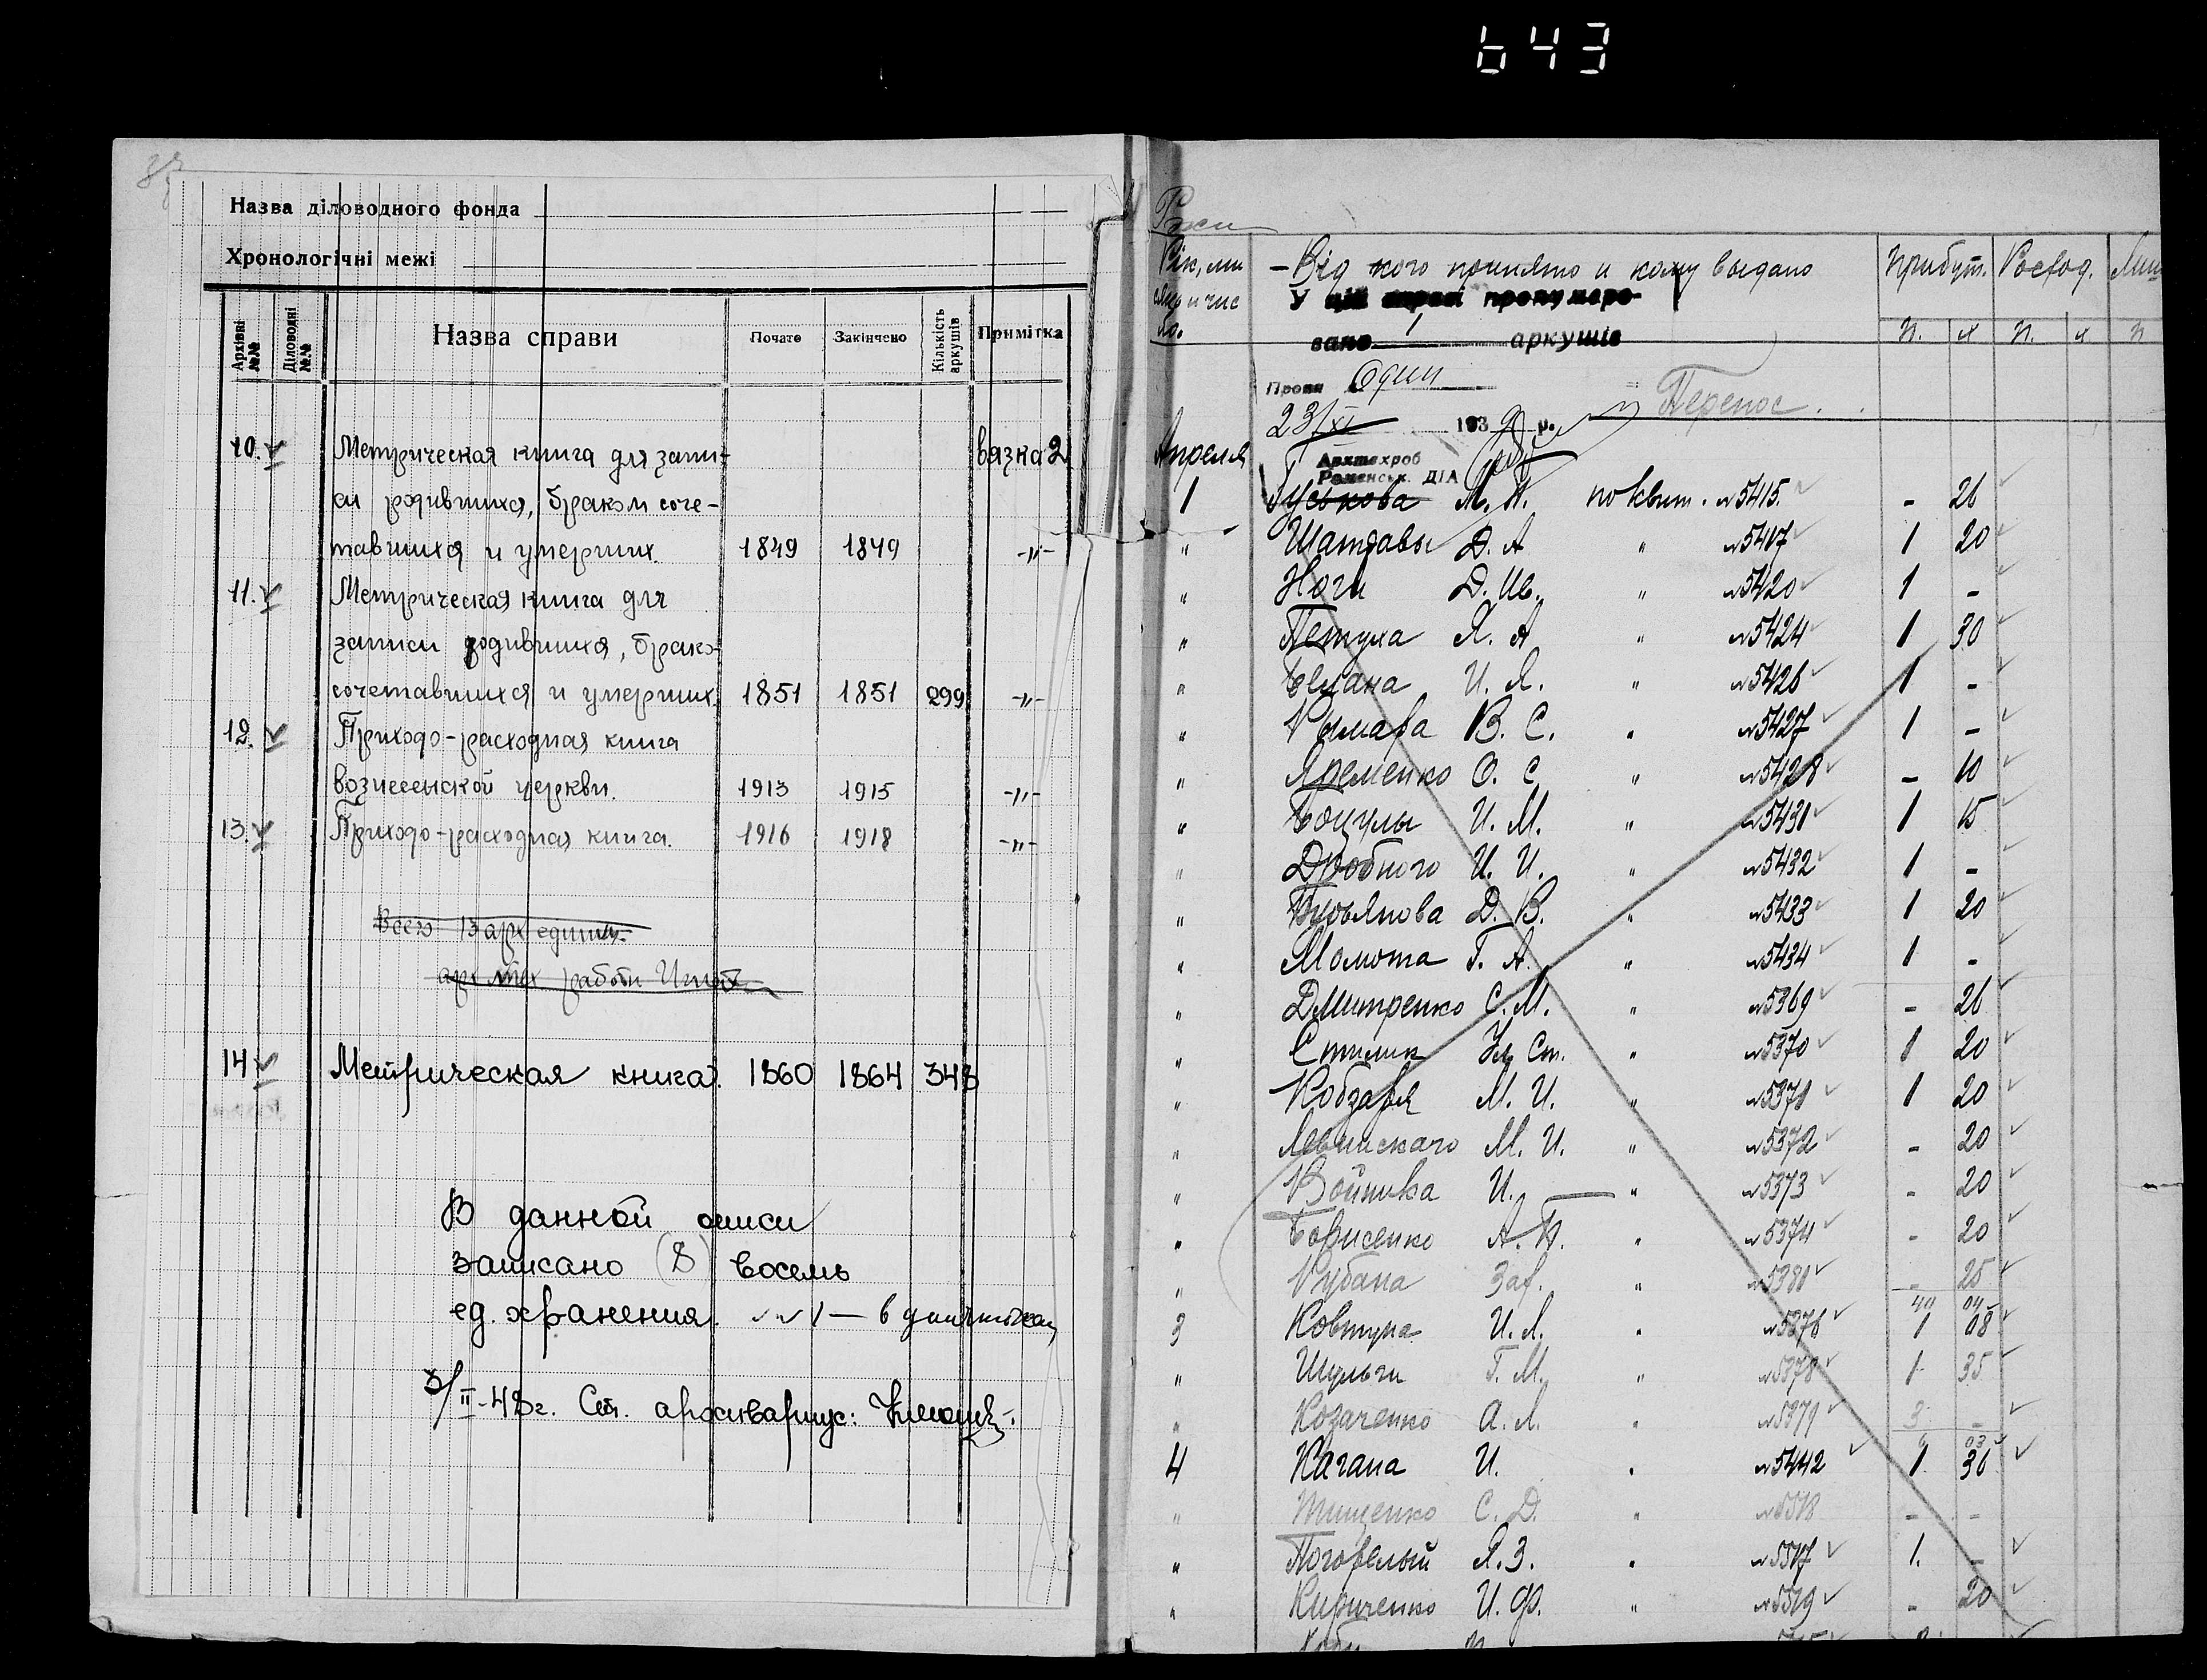 643
Назва діловодного фонда
Хронологічні межі
Архівні №№ Діловодні №№ Назва справи Почато Закінчено Кількість аркушів Примітка
10. Метрическая книга для запи- вязка 2
си родившихся, браком соче-
тавшихся и умерших. 1849 1849 -"-
11. Метрическая книга для
записи родившихся, брако-
сочетавшихся и умерших. 1851 1851 299 -"-
12. Приходо-расходная книга
вознесенской церкви. 1913 1915 -"-
13. Приходо-расходная книга. 1916 1918 -"-
Всего 13 арх единиц.
арх тех работн
14 Метрическая книга. 1860 1864 348
В данной описи
записано (8) восемь
ед. хранения.
3/II-48г. Ст. архивариус:
Рік, мі
сяц и чис
ло.
- Від кого принято и кому выдано Прибут. Росход.
У цій справі пронумеро-
вано 1 аркушів
п. к п. к п
Один
23/XI 1939 р. Перенос.
Архтехроб
Роменськ. ДІА
Апреля
1 Гуськова М. П. по квит. №5415. - 26
" Шаптавы Д. А " №5417 1 20
" Ноги Д. Ив. " №5420 1 -
" Петуха Я. А " №5424 1 30
" Белана И. Я. " №5426 1 -
" Кимара В. С. " №5427 1 -
" Яременко О. С. " №5428 - 10
" Боцулы И. М. " №5431 1 15
" Дробного И. И. " №5432 1 -
" Бурьянова Д. В. " №5433 1 20
" Момота Г. А. " №5434 1 -
" Дмитренко С. М. " №5369 - 26
" №5370 1 20
" Кобзаря М. И. " №5371 1 20
" Левинскаго М. И. " №5372 - 20
" Войника И. " №5373 - 20
" Борисенко А. П. " №5374 - 20
" Кубана Зах. " №5381 - 25
3 Ковтуна И. Л. " №5376 1 08
" Шульги Г. М. " №5378 1 35
" Козаченко А. Л. " №5379 3 -
4 Кагана И. " №5442 1 36
" Тищенко С. Д. " №5518 - -
" Погорелый Я. З. " №5517 1. -
" Кириченко И. Ф. " №5519 - 20